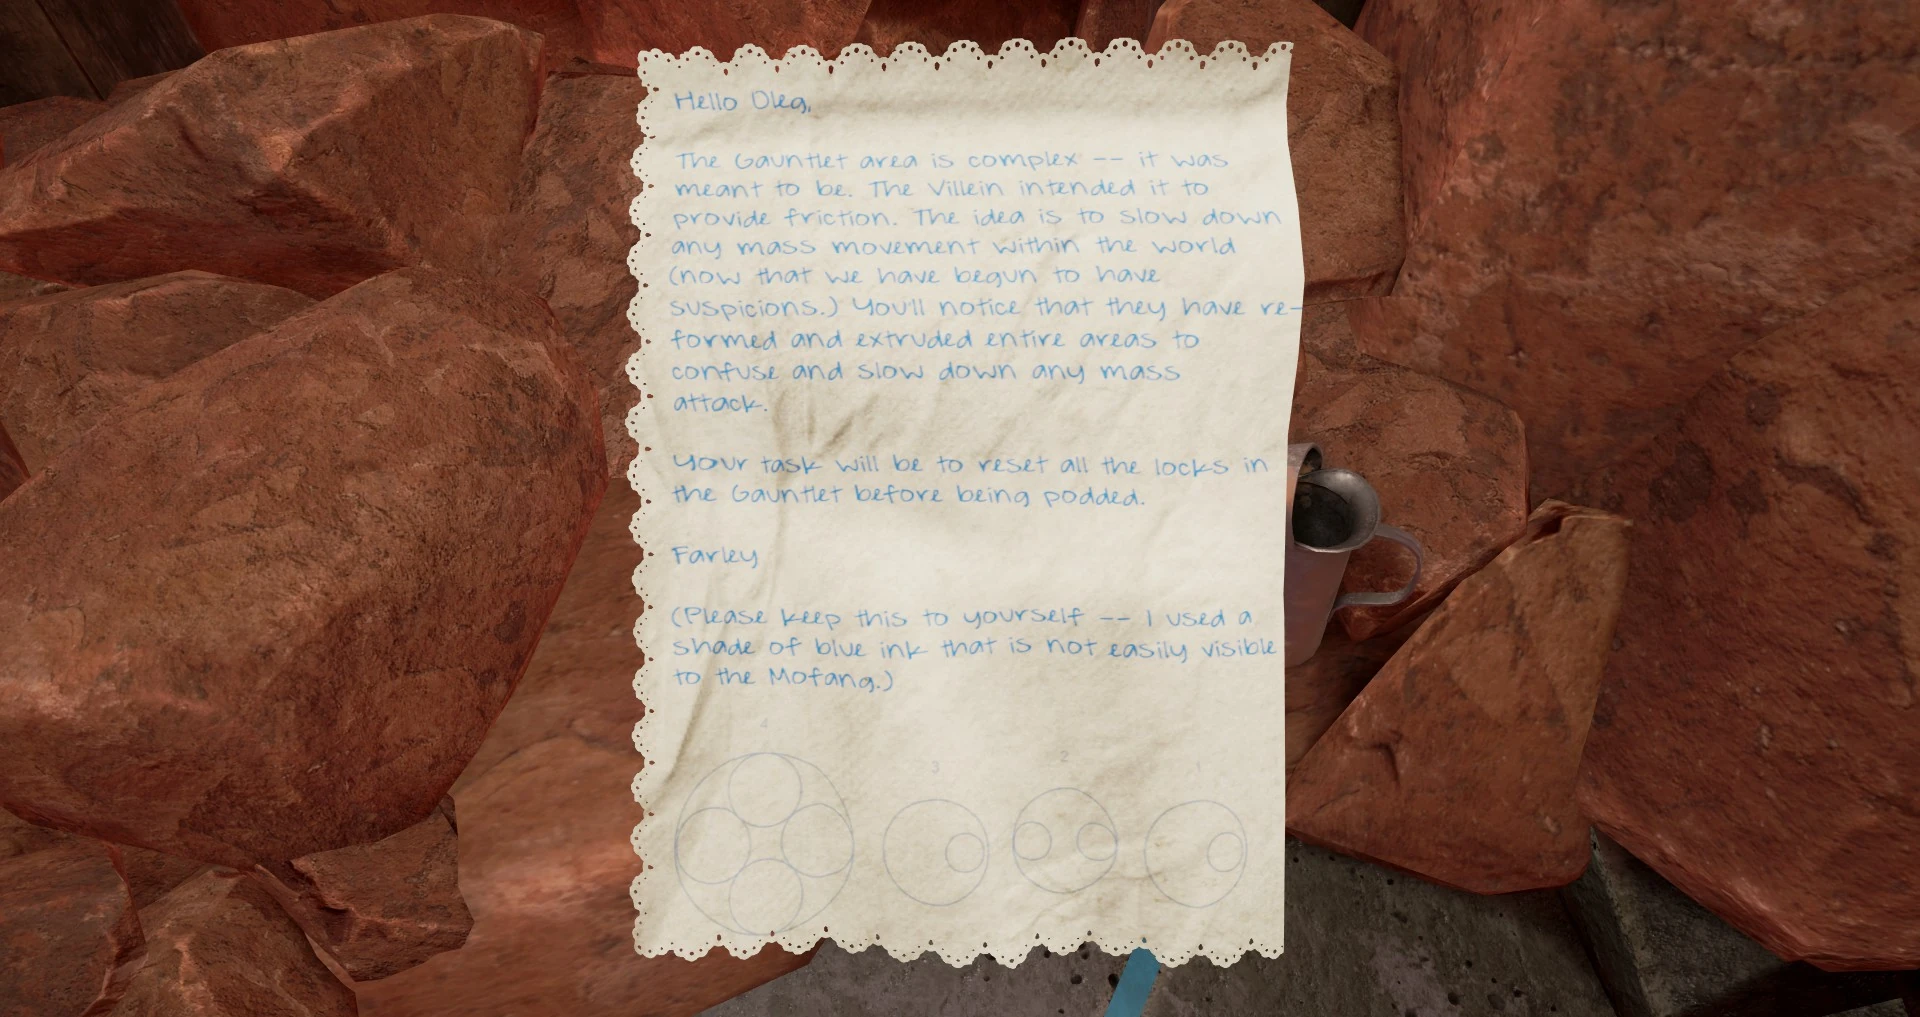 Hello Oleg,
The Gauntlet area is complex -- it was
meant to be. The Villein intended it to
provide friction. The idea is to slow down
any mass movement within the world
(now that we have begun to have
suspicions.) You'll notice that they have re-
formed and extruded entire areas to
confuse and slow down any mass
attack.
Your task will be to reset all the locks in
the Gauntlet before being podded.
Farley
(Please keep this to yourself -- I used a
shade of blue ink that is not easily visible
to the Mofang.)
4 3 2 1